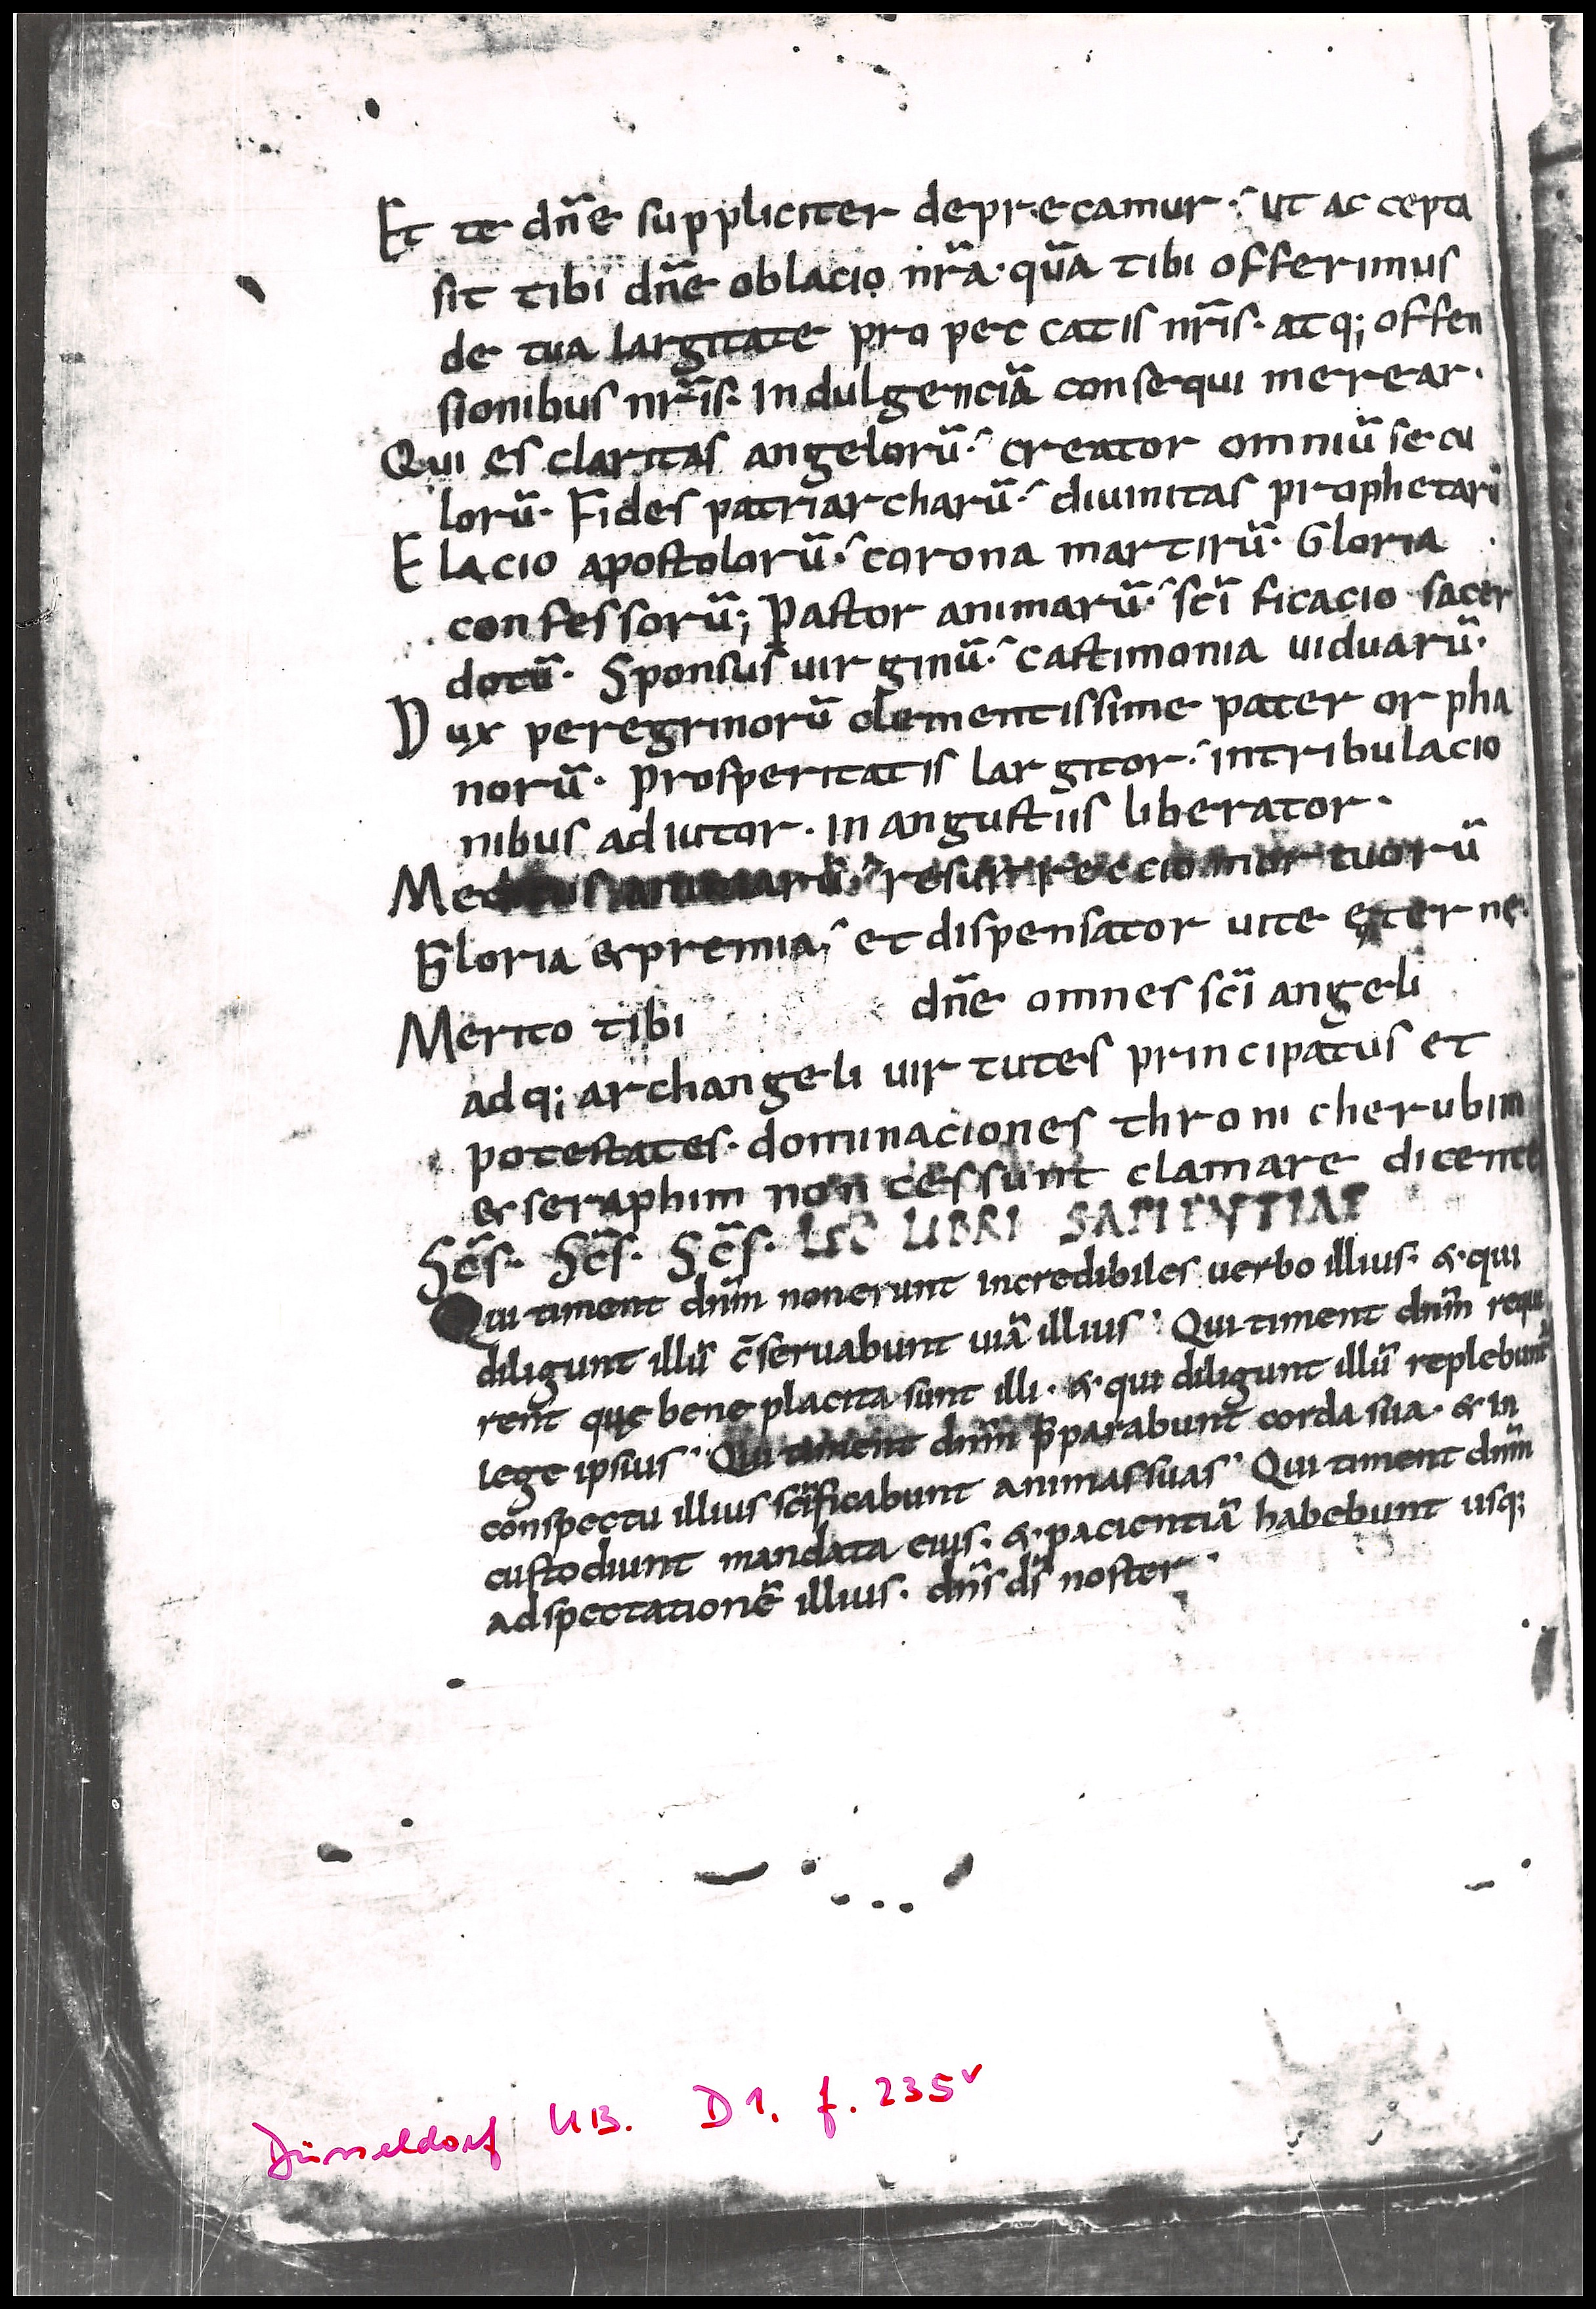 Et te dn̄e suppliciter deprecamur· ut accepta
sit tibi dn̄e oblacio nr̄a· quā tibi offerimus
de tua largitate pro peccatis nr̄is· atq; offen
sionibus nr̄is· Indulgenciā consequi merear·
Qui es claritas angelorū· creator omniū secu
lorū· Fides patriarcharū· diuinitas prophetarū
Elacio apostolorū· corona martirū· Gloria
confessorū; Pastor animarū· sc̄ificacio sacer
dotū· Sponsus uirginū· castimonia uiduarū·
Dux peregrinorū clementissime pater orpha
norū· Prosperitatis largitor· intribulacio
nibus adiutor· in angustiis liberator·
resurreccio mortuorū
Gloria & premia· et dispensator uite ęterne·
Merito tibi dn̄e omnes sc̄i angeli
adq; archangeli uirtutes principatus et
potestates· dominaciones throni cherubim
& seraphim non cessunt clamare dicent
Sc̄s· Sc̄s· Sc̄s· LEC LIBRI SAPIENTIAE
Qui timent dn̄m nonerunt incredibiles uerbo illius· & qui
diligunt illū c̄seruabunt uiā illius· Qui timent dn̄m requi
rent quę bene placita sunt illi· & qui diligunt illū replebunt̄
lege ipsius· Qui timent dn̄m p̄parabunt corda sua· & in
conspectu illius sc̄ificabunt animas suas· Qui timent dn̄m
custodiunt mandata eius· & pacientiā habebunt usq;
adspectationē illius· dn̄s ds̄ noster·
Düsseldorf UB. D1. f. 235v